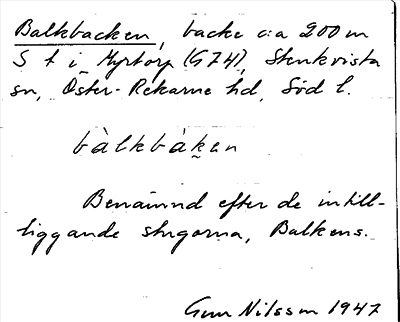 Balkbacken, backe c:a 200 m
S t i Myrtorp (G 74), Stenkvista
sn, Öster-Rekarne hd, Söd l.
bàlkbák̬en
Benämnd efter de intill-
liggande stugorna, Balkens.
Gun Nilsson 1947